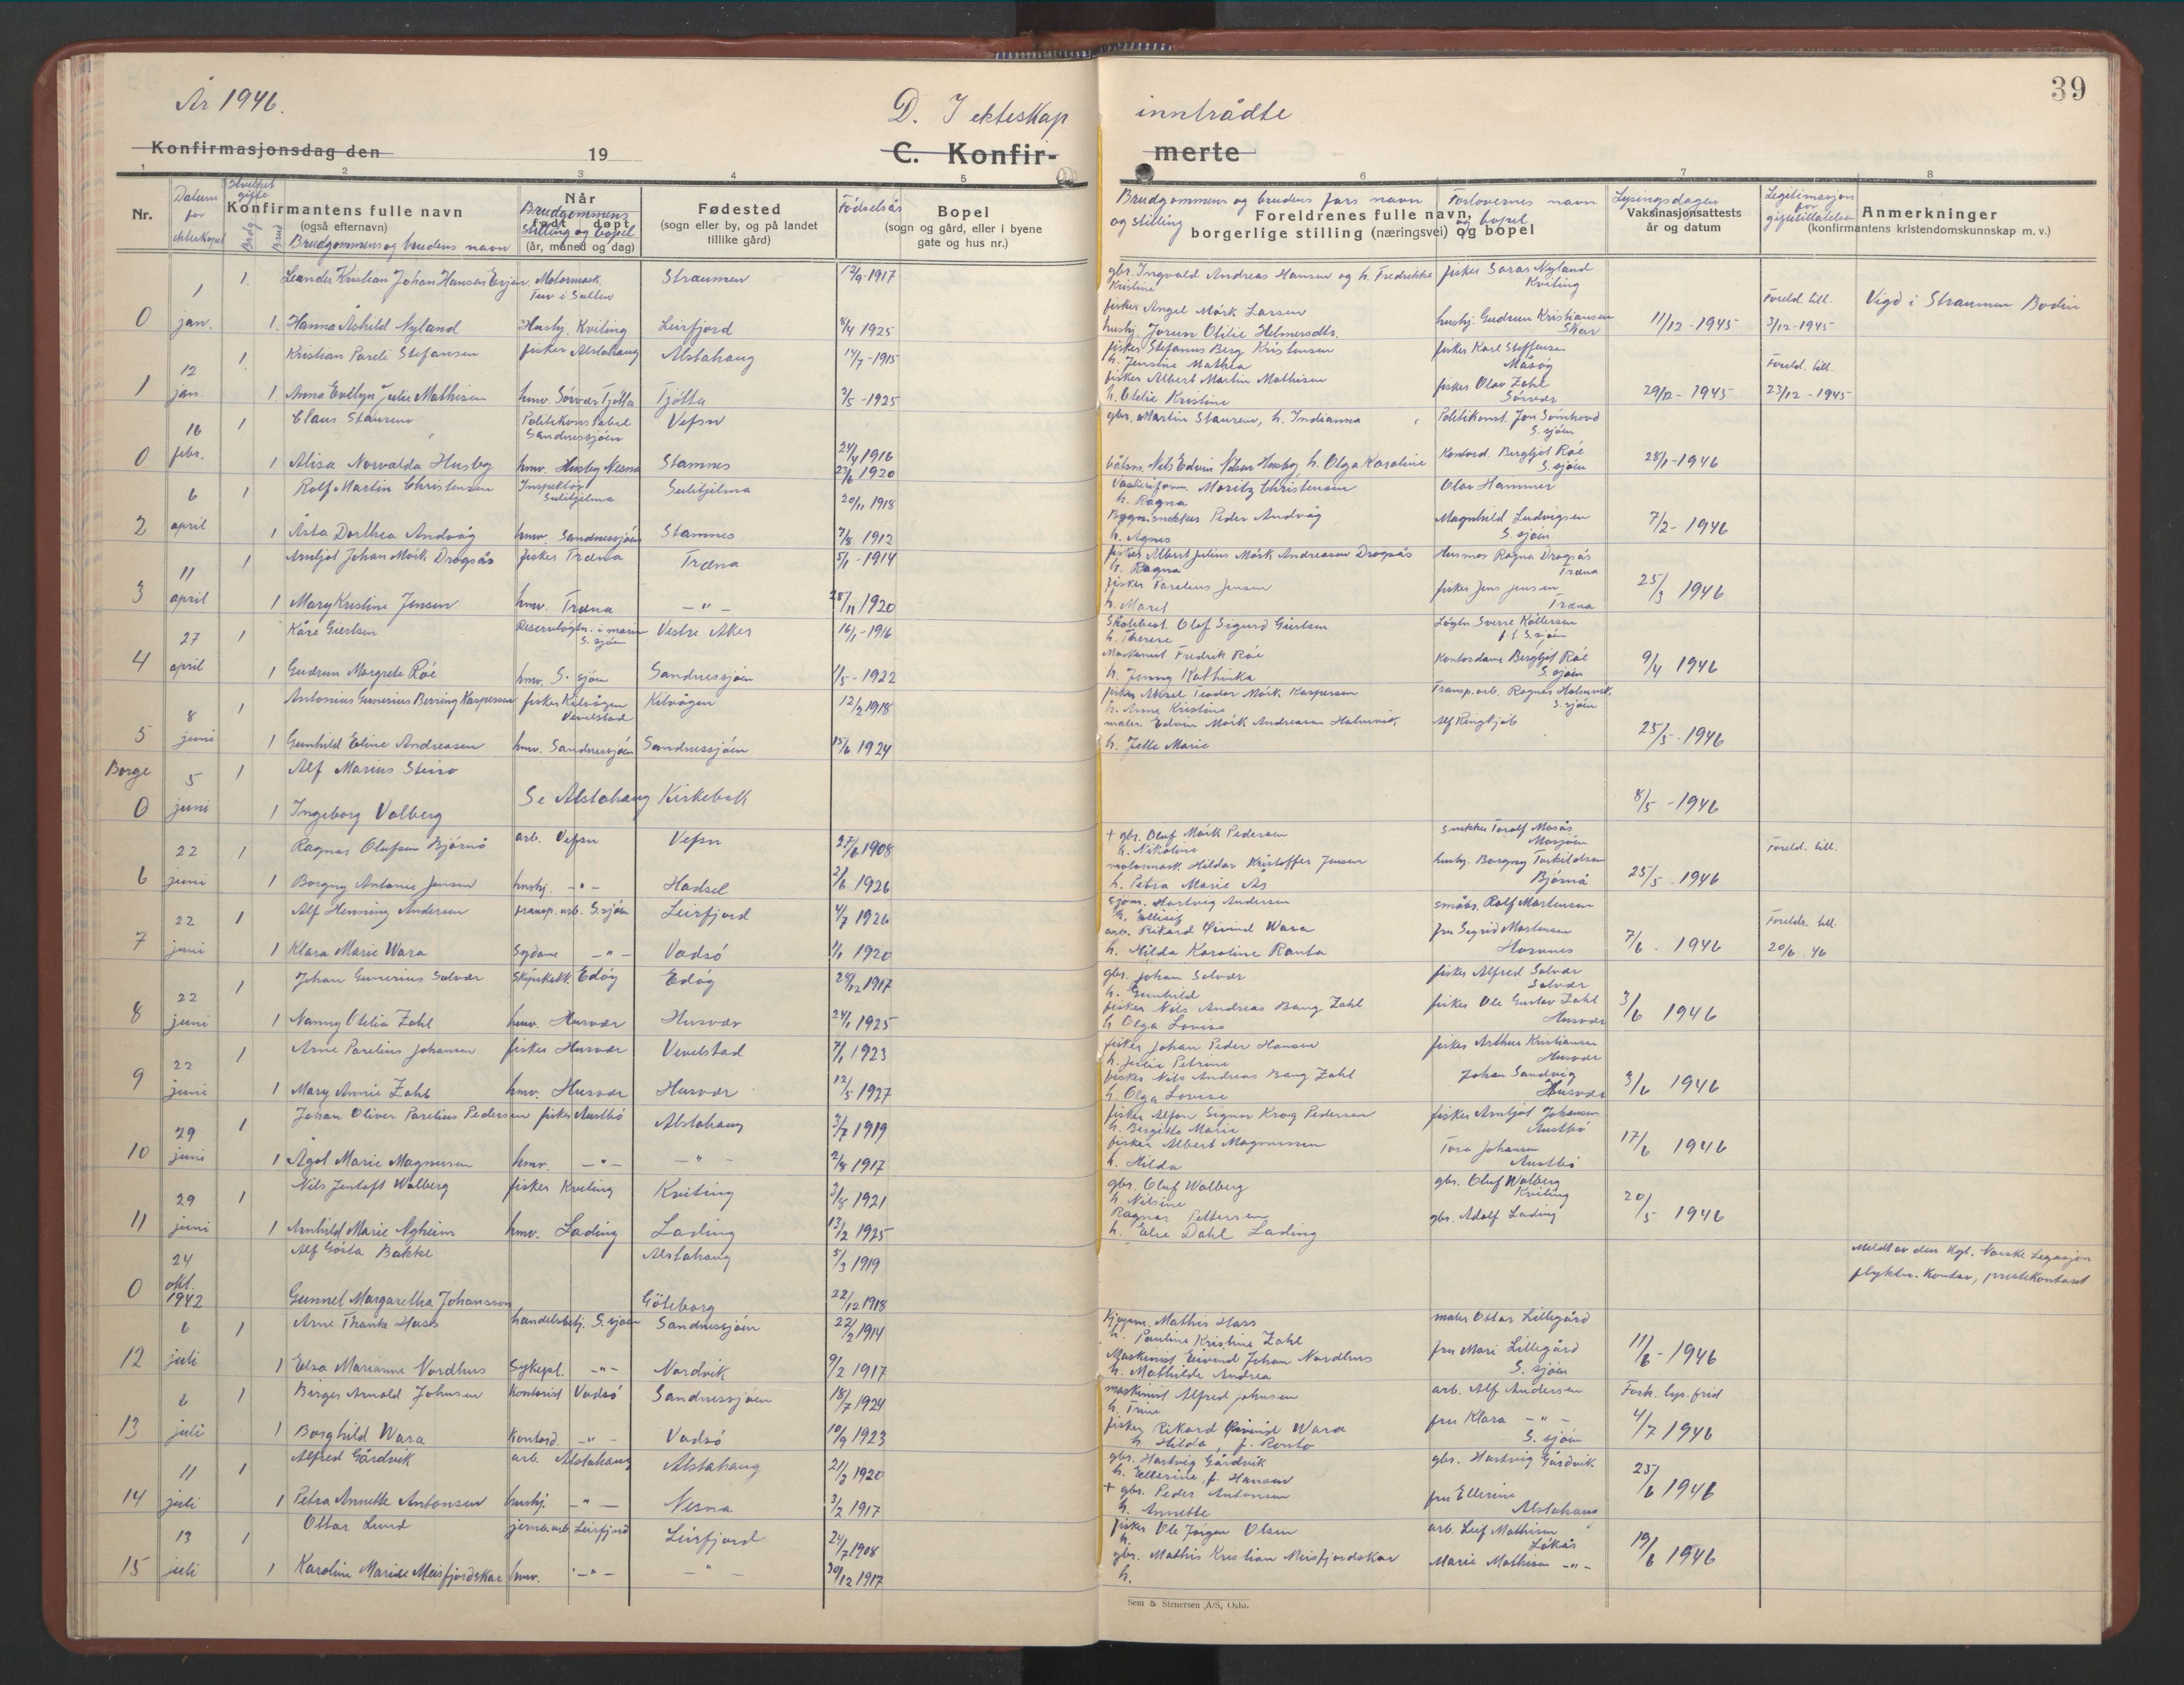 39
År 1946.
D. I ekteskap inntrådte
Konfirmasjonsdag den 19
C. Konfir- merte
1 2 3 4 5 6 7 8
Nr.
Datum for ekteskapet
gifte
Brdg Brud
Konfirmantens fulle navn
(også efternavn)
Brudgommens og brudens navn
Når
Brudgommens
født døpt
stilling og bopel
(år, måned og dag)
Fødested
(sogn eller by, og på landet
tillike gård)
Fødselsår
Bopel
(sogn og gård, eller i byene
gate og hus nr.)
Brudgommens og brudens fars navn
og stilling
Foreldrenes fulle navn,
borgerlige stilling (næringsvei) og bopel
Forlovernes navn
og bopel
Lysingsdagen
Vaksinasjonsattests
år og datum
Legitimasjon
for
giftetillatelse
Anmerkninger
(konfirmantens kristendomskunnskap m. v.)
1 1 Leander Kristian Johan Hansen Motormask. Straumen 12/9-1917 gbr. Ingvald Andreas Hansen og h. Fredrikke Kristine fisker Saras Nyland Kviting
0 jan. 1. Hanna Åshild Nyland Hushj. Kviting Leirfjord 4/4 1925 fisker Angel Mørk Larsen hushj. Jorun Otilie Helmersdtr. hushj. Gudrun Kristiansen Skar 11/12-1945 Foreld. till. 3/12-1945 Vigd i Straumen Bodin
12 1 Kristian Pareli Stefansen fisker Alstahaug Alstahaug 14/7-1915 fisker Stefanus Berg Kristensen h. Jensine Mathea fisker Karl Steffensen Måsøy
1 jan 1 Anna Evelyn Julie Mathisen hmv. Sørvær Tjøtta Tjøtta 3/5-1925 fisker Albert Martin Mathisen h. Otelie Kristine fisker Olav Zahl Sørvær 29/12-1945 Foreld. till. 23/12-1945
16 1 Claus Stauren Politikonst. Sandnessjøen Vefsn 24/4 1916 gbr. Martin Stauren, h. Indianna Politikonst. Jon Sømhovd S.sjøen
0 febr. 1 Alisa Norvalda Husby hmv. Husby Nesna Stamnes 23/6 1920 båtsm. Nils Edvin Nilsen Husby, h. Olga Karoline Kontord. Bergljot Røe S.sjøen 28/1-1946
6 1 Rolf Martin Christensen Inspektør Sulitjelma Sulitjelma 20/11 1918 Vaskeriform. Moritz Christensen h. Ragna Olav Hammer
2 april 1 Åsta Dorthea Andvåg hmv. Sandnessjøen Stamnes 7/8 1912 Bygn.snekker Peder Andvåg h. Agnes Magnhild Ludvigsen S.sjøen 7/2-1946
11 1 Arnljot Johan Mørk Drogsås fisker Træna Træna 5/1-1914 fisker Albert Julius Mørk Andreasen Drogsås h. Ragna Husmor Ragna Drogsås Træna
3 april 1 Mary Kristine Jensen hmv. Træna — " — 28/11 1920 fisker Parelius Jensen h. Maret fisker Jens Jensen Træna 25/3 1946
27 1 Kåre Giertsen Reserveløytn. i marin S.sjøen Vestre Aker 16/1-1916 Skolebest. Olaf Sigurd Giertsen h. Therese Løytn. Sverre Kollersen S.sjøen
4 april 1 Gudrun Margrete Røe hmv. S.sjøen Sandnessjøen 1/5-1922 Maskinist Fredrik Røe h. Jenny Kathinka Kontordame Bergljot Røe S.sjøen 9/4 1946
8 1 Antonius Gunerius Berring Kaspersen fisker Kilvågen Vevelstad Kilvågen 12/2 1918 fisker Aksel Teodor Mørk Kaspersen h. Anne Kristine Transp.arb. Ragnar Holmvik S.sjøen
5 juni 1 Gunhild Eline Andreasen hmv. Sandnessjøen Sandnessjøen 15/6 1924 maler Edvin Mørk Andreasen Holmvik h. Jette Marie Alf Ringkjøb 25/5-1946
Borge 5 1 Alf Marius Steiro
0 juni 1 Ingeborg Valberg Se Alstahaug Kirkebok 8/5-1946
22 1 Ragnar Olufsen Bjørnå arb. Vefsn Vefsn 27/6 1908 + gbr. Oluf Mörk Pedersen h. Nikoline snekker Toralf Mosås Mosjøen
6 juni 1 Borgny Antonie Jensen hushj. — " — Hadsel 2/6 1926 motormask. Hildar Kristoffer Jensen h. Petra Marie Ås hushj. Borgny Torkildsen Bjørnå 25/5-1946 Foreld. till.
22 1 Alf Henning Andersen transp.arb. S.sjøen Leirfjord 4/7 1926 sjøm. Hartvig Andersen h. Ellisif småbr. Rolf Mortensen
7 juni 1 Klara Marie Wara Sydame — " — Vadsø 1/1 1920 arb. Rikard Øivind Wara h. Hilda Karoline Ranta fru Sigrid Mortensen 7/6-1946 Foreldr. till. 20/6. 46
22 1 Johan Gunerius Solvær Edøy Edøy 28/12 1917 gbr. Johan Solvær h. Gunhild fisker Alfred Solvær Solvær
8 juni 1 Nanny Otelia Zahl hmv. Husvær Husvær 24/1 1925 fisker Nils Andreas Bang Zahl h Olga Lovise fisker Ole Gustav Zahl Husvær 3/6 1946
22 1 Arne Parelius Johansen fisker Husvær Vevelstad 7/1 1923 fisker Johan Peder Hansen h. Julie Petrine fisker Arthur Kristiansen Husvær
9 juni 1 Mary Annie Zahl hmv. Husvær Husvær 12/5 1927 fisker Nils Andreas Bang Zahl h. Olga Lovise Johan Sandvig Husvær 3/6 1946
29 1 Johan Oliver Parelius Pedersen fisker Austbø Alstahaug 3/7 1919 fisker Alfon Signor Krog Pedersen h. Bergitte Marie fisker Arnljot Johansen Austbø
10 juni 1 Ågot Marie Magnussen hmv. — " — — " — 2/8 1917 fisker Albert Magnussen h. Hilda Tora Johansen Austbø 17/6 1946
29 1 Nils Jentoft Walberg fisker Kviting Kviting 3/8 1921 gbr. Oluf Walberg h. Nilsine gbr. Oluf Walberg Kviting
11 juni 1 Arnhild Marie Nyheim hmv. Lading Lading 13/2 1925 Ragnar Pettersen h. Else Dahl Lading gbr. Adolf Lading 20/5 1946
24 Alf Gösta Bakke Alstahaug 5/3 1919
0 okt. 1942 Gunnel Margaretha Johansson Göteborg 22/12 1918 Meldt av den Kgl. Norske Legasjon flyktn. kontor, prestekontoret
6 1 Arne Thanke Hass handelsbetj. S.sjøen Sandnessjøen 22/2 1914 Kjøpm. Mathis Hass h. Pauline Kristine Zahl maler Ottar Lillegård
12 juli 1 Elsa Marianne Nordhus Sykepl. — " — Nordvik 9/2 1917 Maskinist Eivind Johan Nordhus h. Mathilde Andrea fru Mari Lillegård S. sjøen 11/6-1946
6 1 Birger Arnold Johnsen Kontorist Vadsø Sandnessjøen 18/7 1924 maskinist Alfred Johnsen h. Trine arb. Alf Andersen Fork. lys. frist
13 juli 1 Borghild Wara Kontord. — " — Vadsø 10/9 1923 fisker Rikard Øivind Wara h Hilda, f. Ronto fru Klara — " — S. sjøen 4/7 1946
11 1 Alfred Gårdvik arb. Alstahaug Alstahaug 21/3 1920 gbr. Hartvig Gårdvik h. Ellerine f. Hansen gbr. Hartvig Gårdvik
14 juli 1 Petra Annette Antonsen hushj. — " — Nesna 3/2 1917 + gbr. Peder Antonsen h. Annette fru Ellerine Alstahaug 25/6 1946
13 1 Ottar Lund jernb.arb. Leirfjord Leirfjord 24/7 1908 fisker Ole Jørgen Olsen h. arb. Leif Mathisen Løkås
15 juli 1 Karoline Meisfjordskar hmv. — " — — " — 30/12 1917 gbr. Mathis Kristian Meisfjordskar h. Marie Mathisen — " — 19/6 1946
Sem & Stenersen A/S, Oslo.